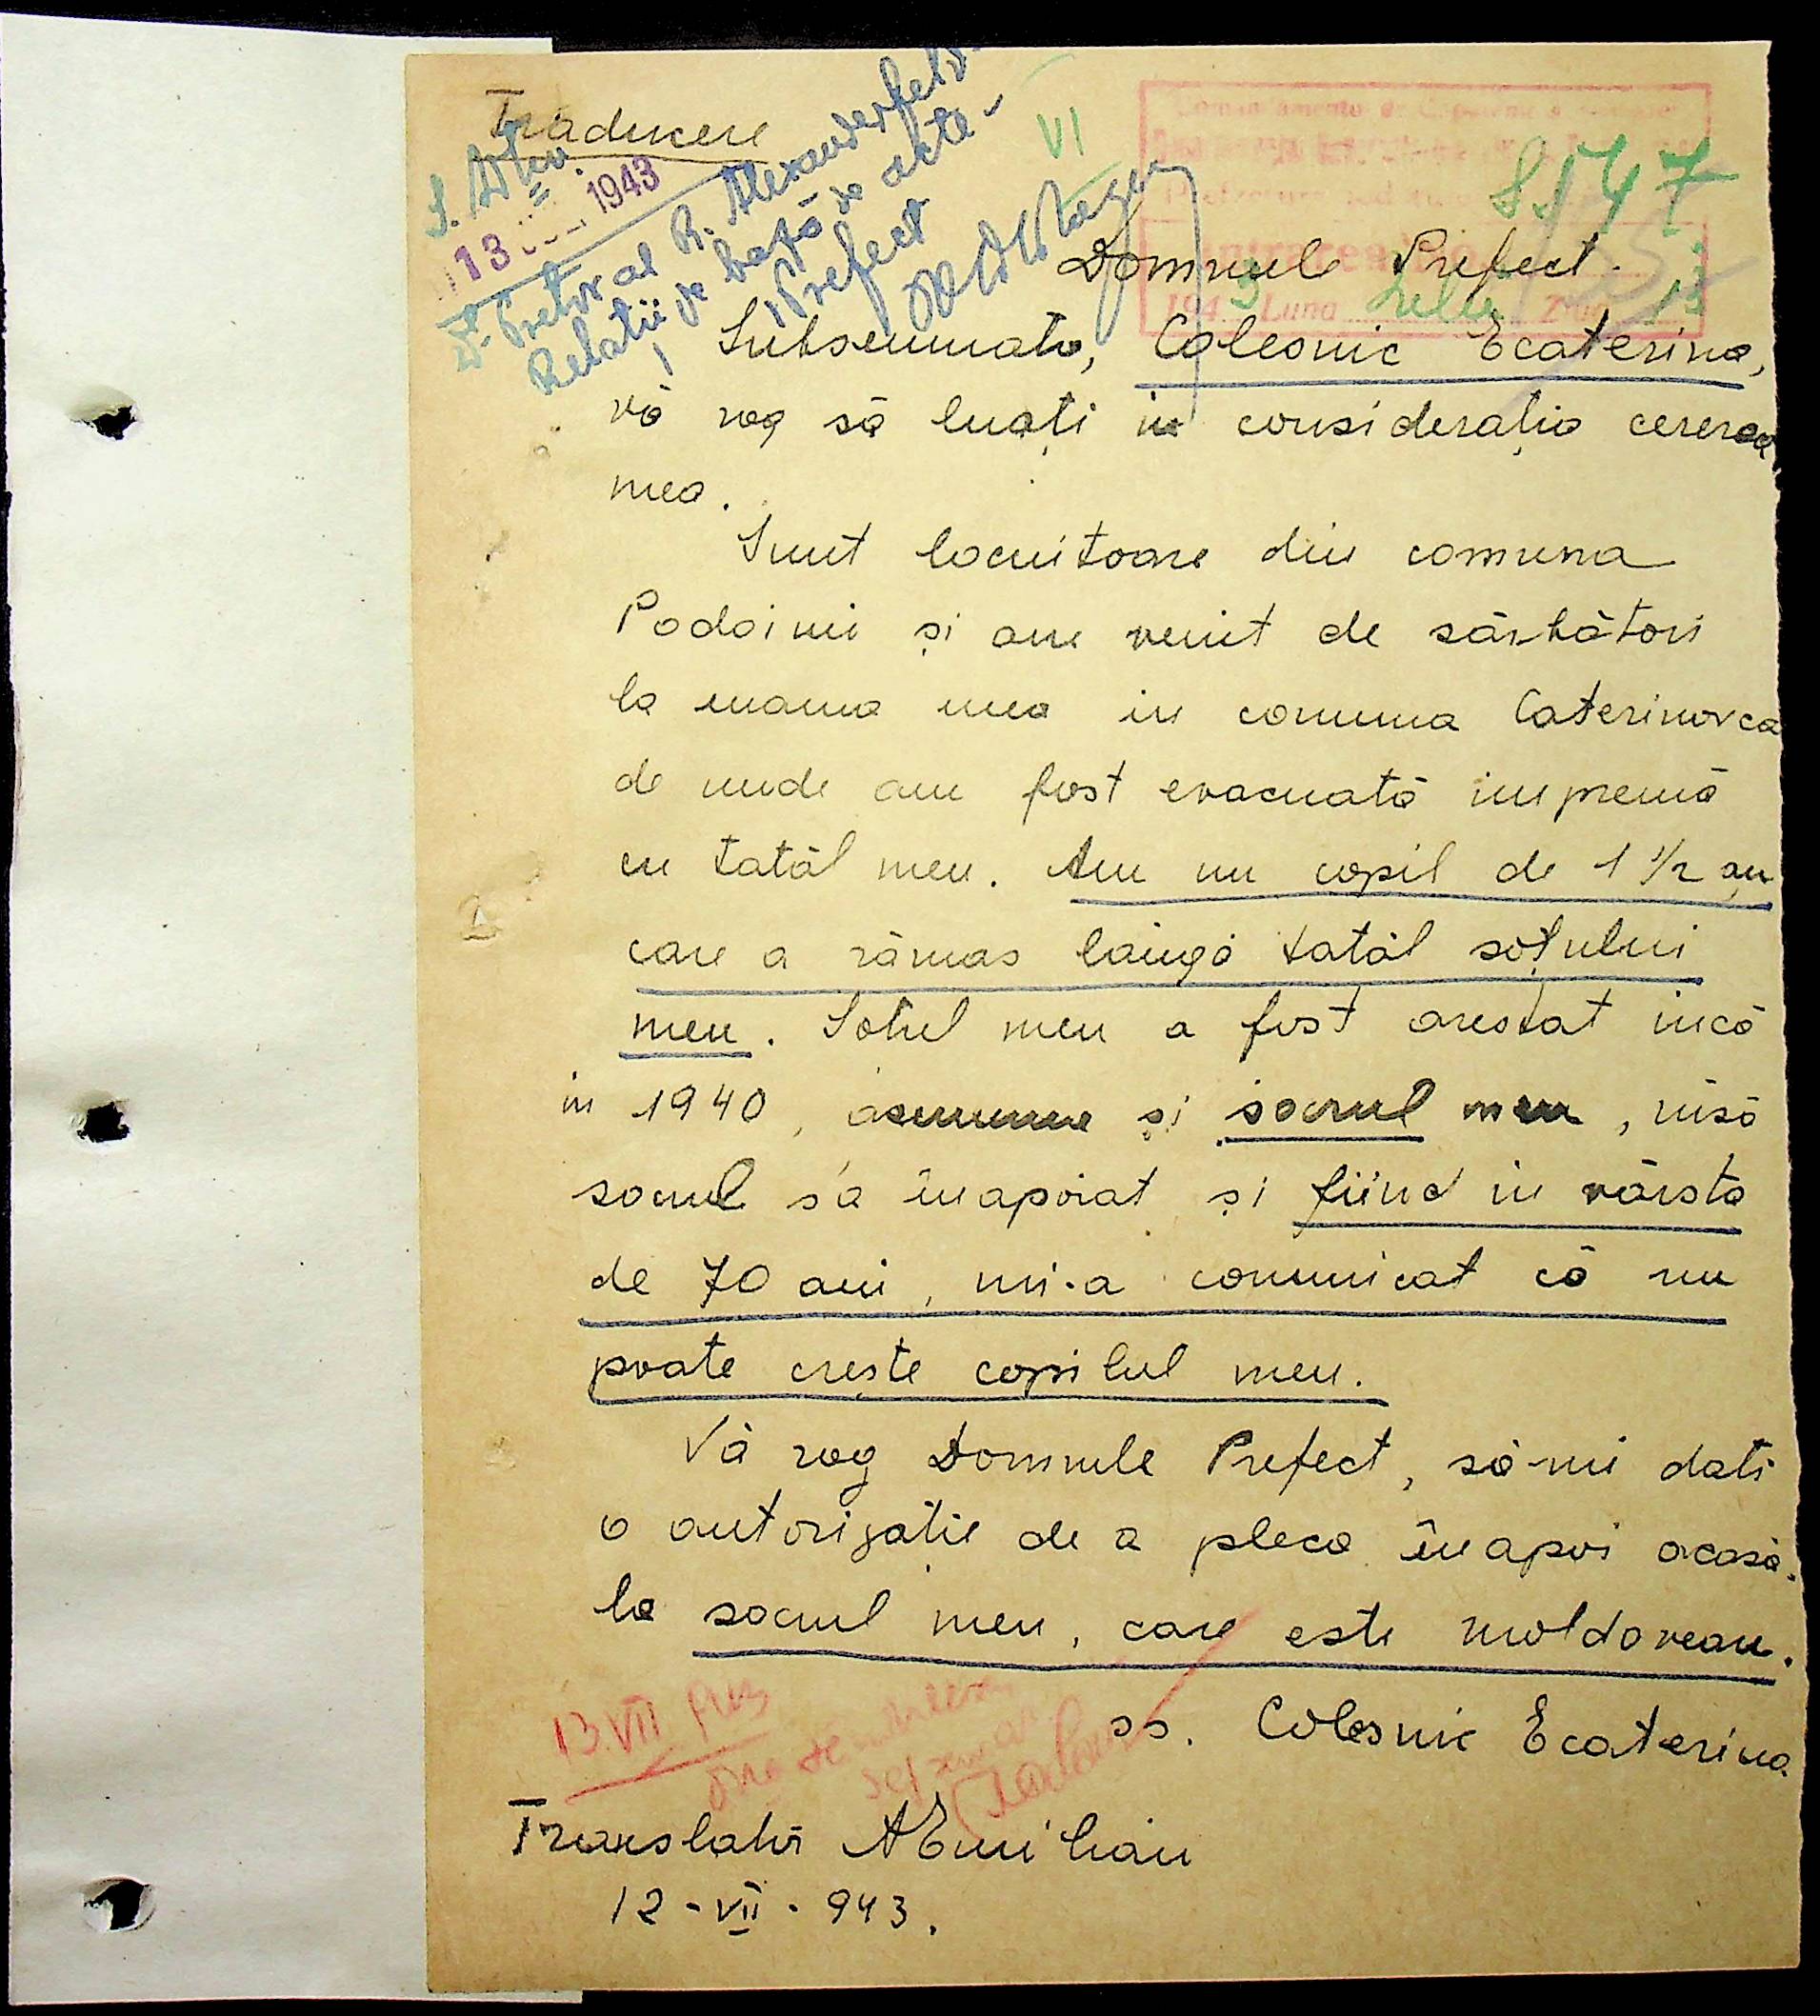 Traducere
13 1943
D. Pretor al R. Alexanderfeld
Relatii de față de acte
Prefect
VI
8547
Domnule Prefect.
194 3 Luna Iulie Ziua 13
Subsemnata, Colesnic Ecaterina,
vă rog să luați in considerația cererea
mea.
Sunt locuitoare din comuna
Podoimi și am venit de sărbători
la mama mea in comuna Caterinovca
de unde am fost evacuată impreună
cu tatăl meu. Am un copil de 1 1/2 an
care a rămas lângă tatăl soțului
meu. Sotul meu a fost arestat incă
in 1940, asemenea și socrul meu, insă
socrul s'a înapoiat și fiind in vârsta
de 70 ani, mi-a comunicat că nu
poate crește copilul meu.
Vă rog Domnule Prefect, să-mi dati
o autorizație de a pleca înapoi acasă
la socrul meu, care este moldovean.
13.VII
ss. Colesnic Ecaterina
Translator AEmilian
12-VII-943.